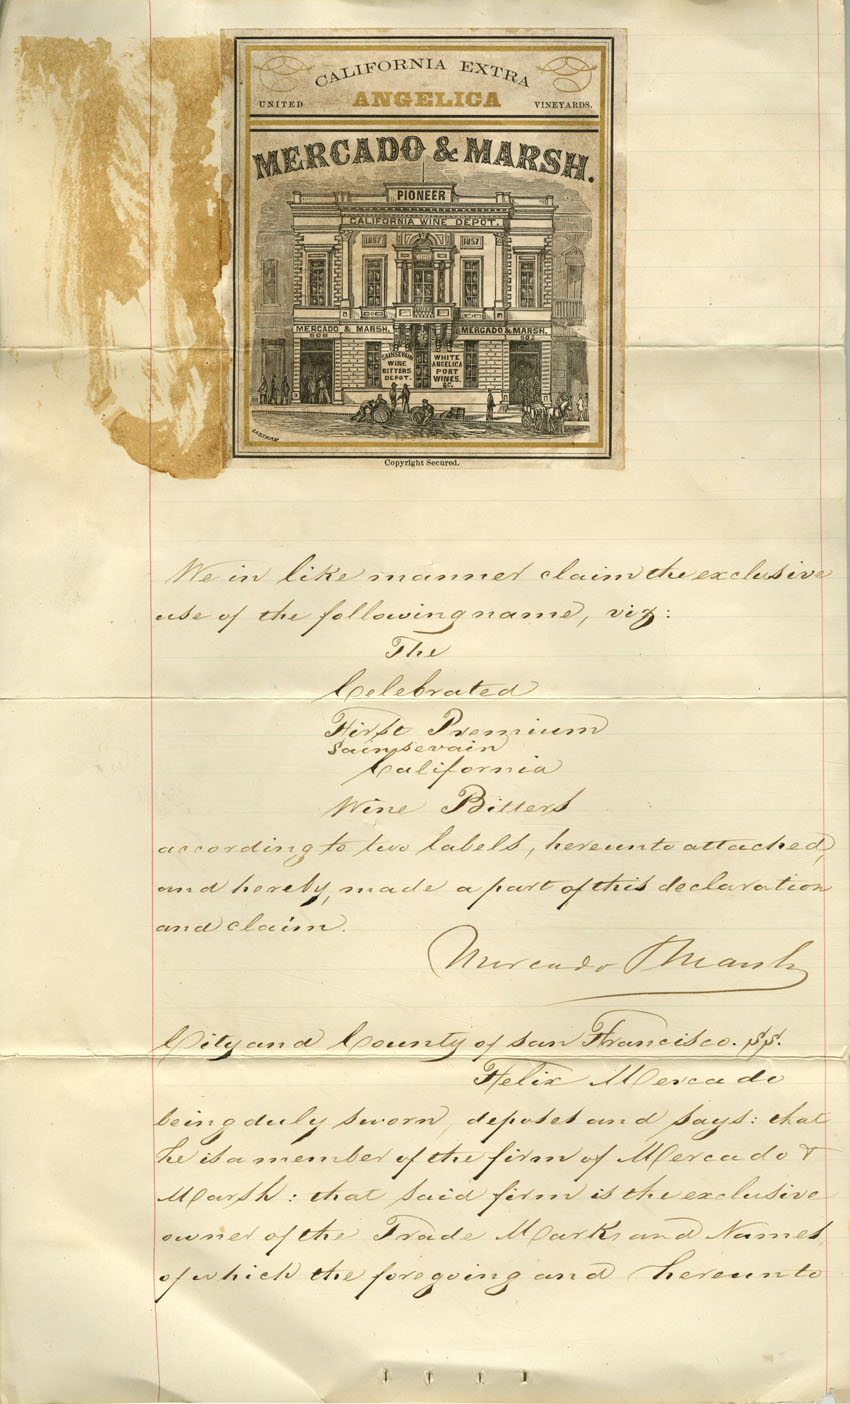 CALIFORNIA EXTRA
UNITED ANGELICA VINEYARDS.
MERCADO & MARSH.
PIONEER
CALIFORNIA WINE DEPOT.
1857 1857
MERCADO & MARSH. MERCADO & MARSH.
508
SAINSEVAIN
WINE
BITTERS
DEPOT.
WHITE
ANGELICA
PORT
WINES.
&c.
EASTMAN
Copyright Secured.
We in like manner claim the exclusive
use of the following name, viz:
The
Celebrated
First Premium
Sainsevain
California
Wine Bitters
according to two labels, hereunto attached,
and hereby, made a part of this declaration
and claim.
Mercado & Marsh
City and County of San Francisco. SS.
Felix Mercado
being duly sworn, deposes and says: that
he is a member of the firm of Mercado &
Marsh: that said firm is the exclusive
owner of the Trade Marks and Names,
of which the foregoing and hereunto